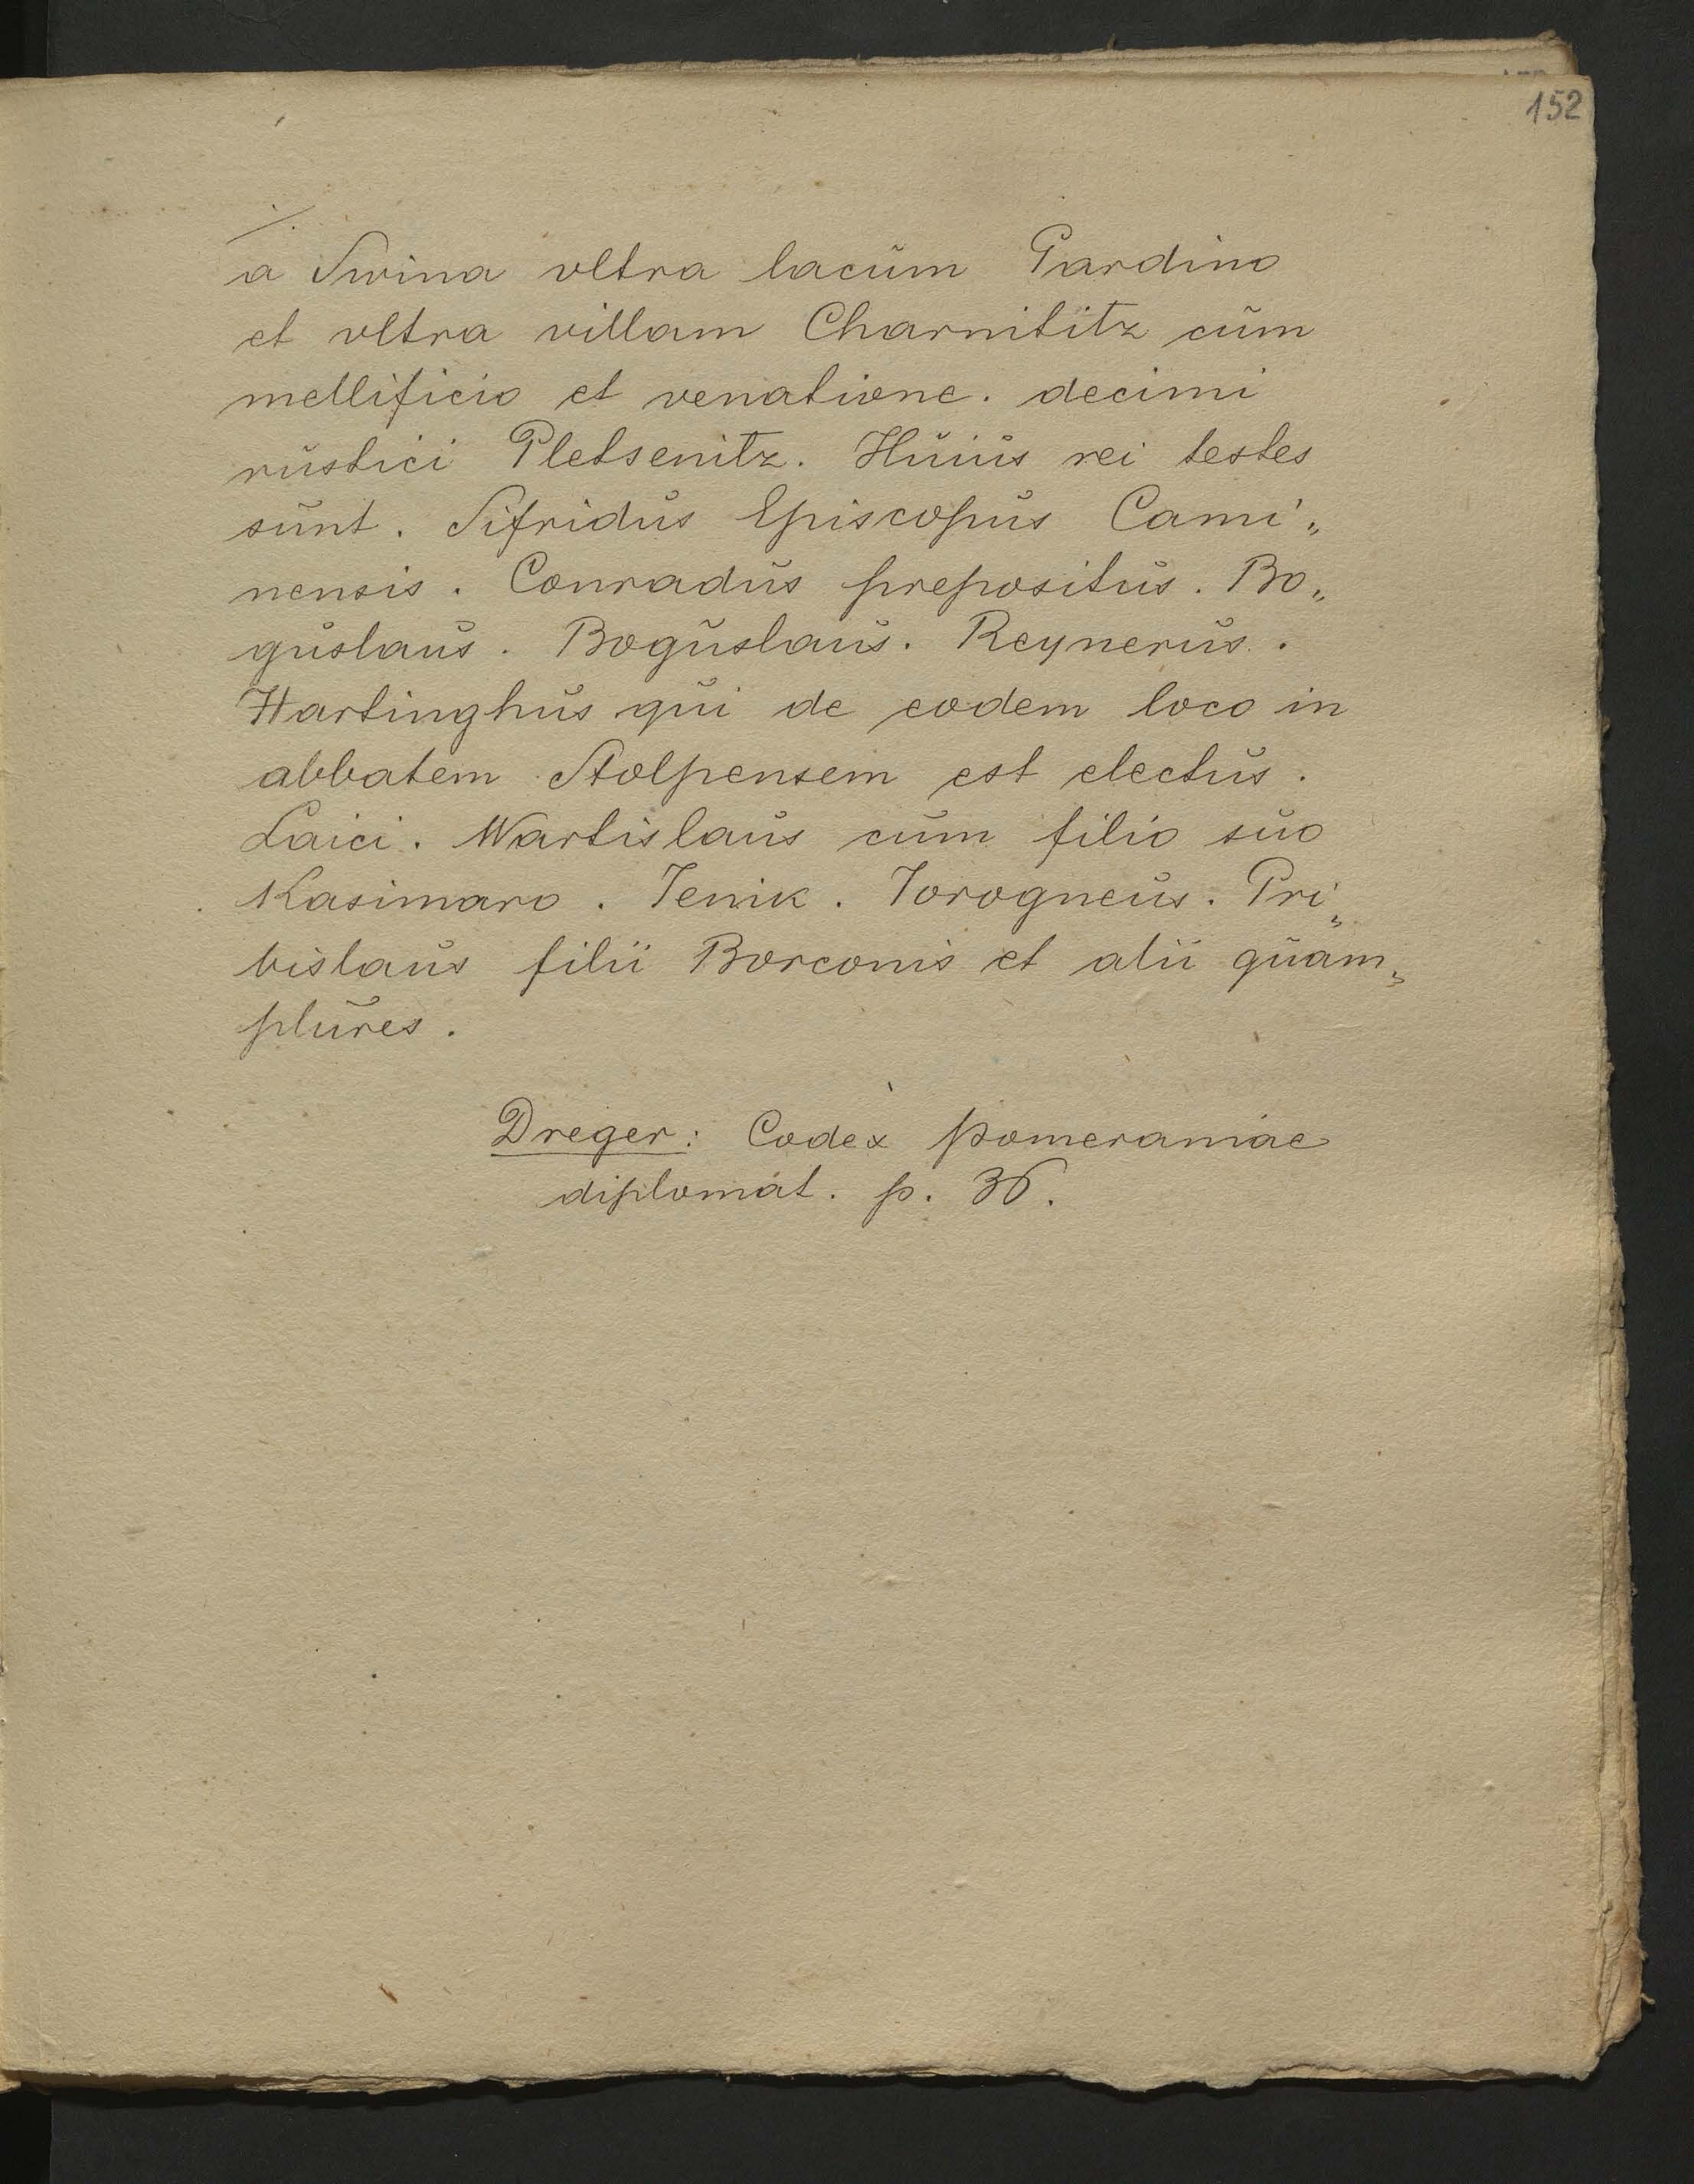 152
./.
a Swina vltra lacŭm Gardino
et vltra villam Charnititz cŭm
mellificio et venatione. decimi
rŭstici Pletsenitz. Hŭiŭs rei testes
sŭnt. Sifridŭs Episcopŭs Cami„
nensis. Conradŭs prepositŭs. Bo„
gŭslaŭs. Bogŭslaŭs. Reynerŭs.
Hartinghŭs qŭi de eodem loco in
abbatem Stolpensem est electŭs.
Laici. Wartislaŭs cŭm filio sŭo
Kasimaro. Jenik. Jorogneŭs. Pri„
bislaŭs filii Borconis et alii qŭam„
plŭres.
Dreger: Codex Pomeraniae
diplomat. p. 36.